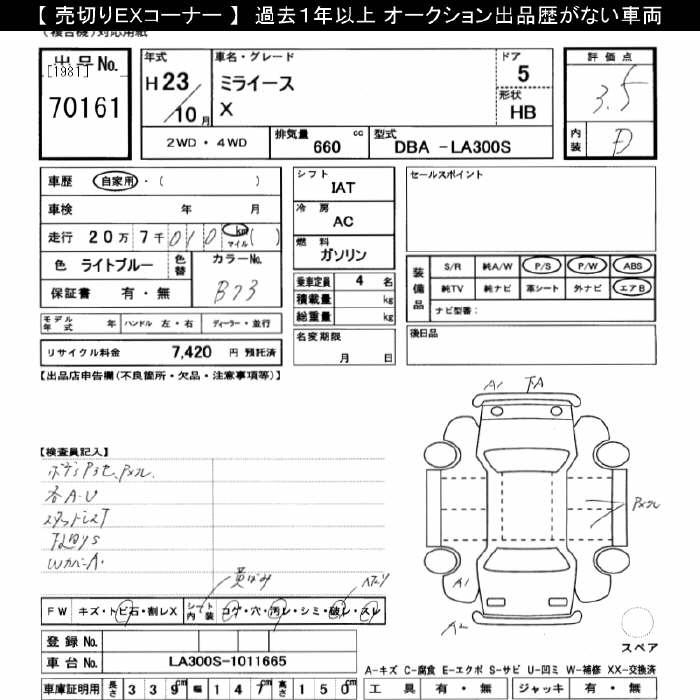 【 売切りEXコーナー 】 過去１年以上 オークション出品歴がない車両
(複合機)対応用紙
出品No.
[1981]
70161
年式
H 23
10月
車名・グレード
ミライース
X
ドア
5
形状
HB
2WD ・ 4WD
排気量 cc
660
型式
DBA －LA300S
評価点
3.5
内装
D
車歴 自家用 ・( )
車検 年 月
走行 20万 7千 0 1 0 km マイル ( )
色 ライトブルー
色替
カラーNo.
B73
保証書 有 ・ 無
モデル年式 年
ハンドル 左・右
ディーラー・並行
リサイクル料金 7,420 円 預託済
シフト
IAT
冷房
AC
燃料
ガソリン
乗車定員 4 名
積載量 kg
総重量 kg
名変期限
月 日
セールスポイント
装備品
S/R 純A/W P/S P/W ABS
純TV 純ナビ 革シート 外ナビ エアB
ナビ型番：
後日品
【出品店申告欄(不良箇所・欠品・注意事項等)】
A1 FA
【検査員記入】
各A・U
WカバーA・
Pメクレ
A1
A2
黄ばみ
FW キズ・トビ石・割レX
シート内装
コゲ・穴・汚レ・シミ・破レ・スレ
登録 No.
車台 No. LA300S-1011665
車庫証明用 長さ 339cm 幅 147cm 高さ 150cm
スペア
A－キズ C－腐食 E－エクボ S－サビ U－凹ミ W－補修 XX－交換済
工具 有 ・ 無
ジャッキ 有 ・ 無